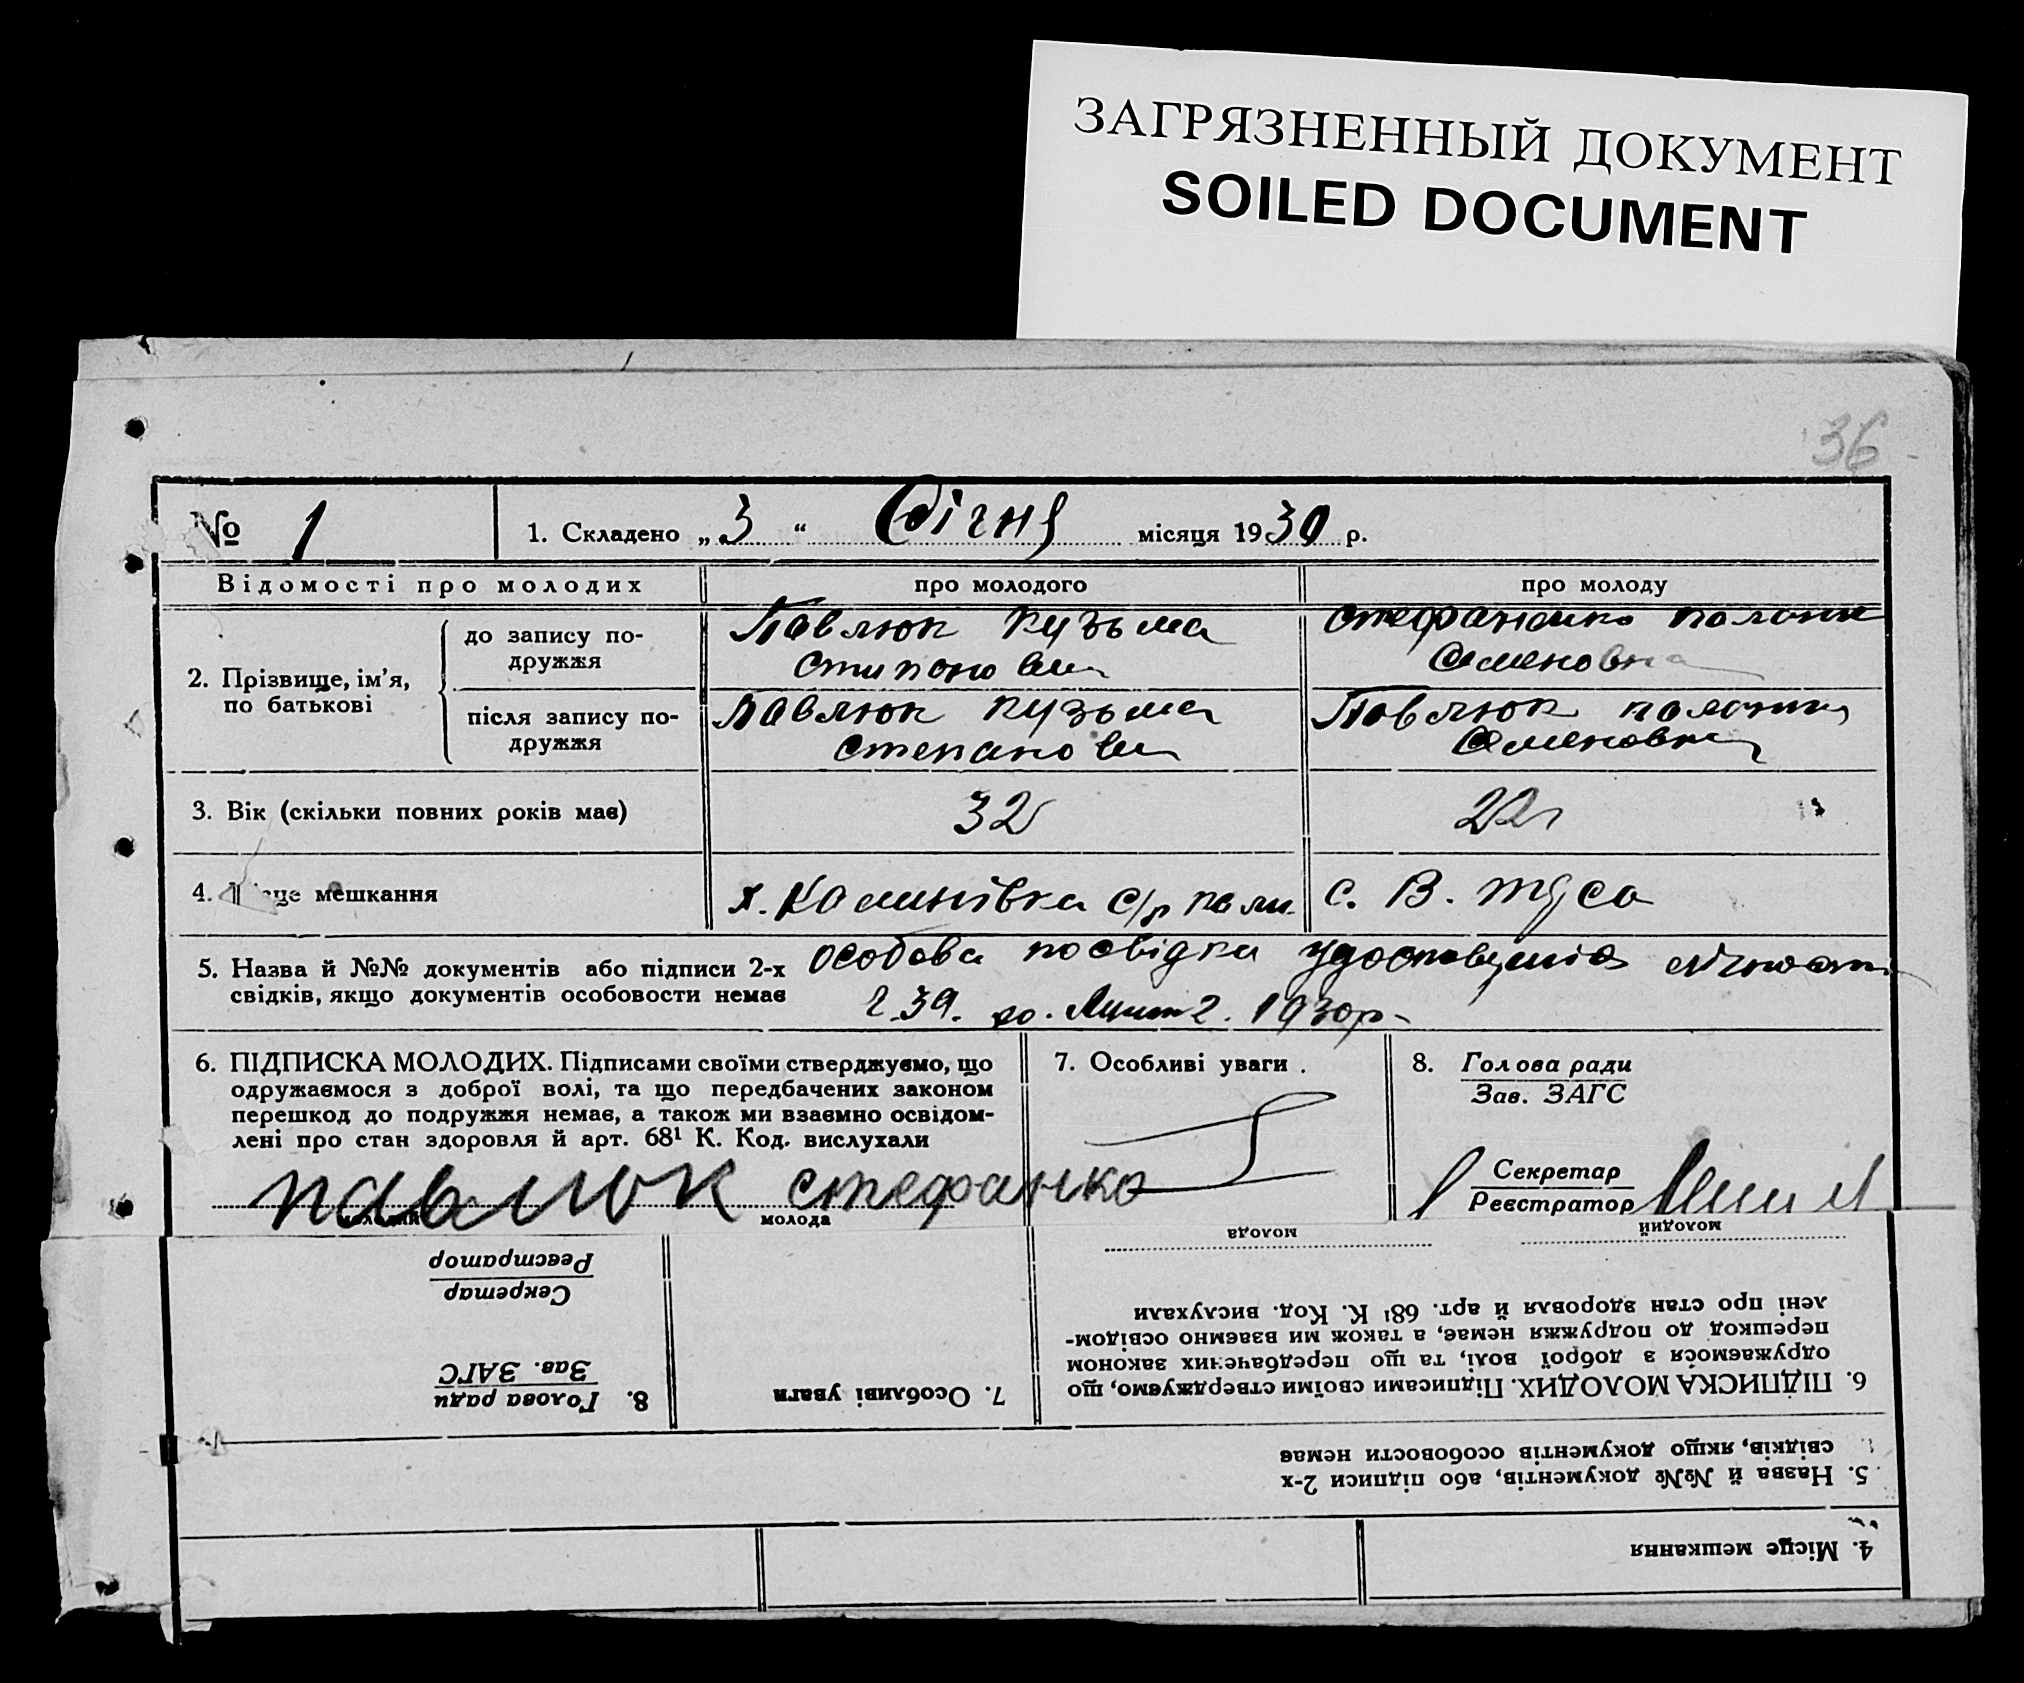 ЗАГРЯЗНЕННЫЙ ДОКУМЕНТ
SOILED DOCUMENT
36
№ 1
1. Складено „ 3 “ Січня місяця 1930 р.
Відомості про молодих
про молодого
про молоду
2. Прізвище, ім’я, по батькові
до запису подружжя
Павлюк Кузьма
Стефаненко
Семеновна
після запису подружжя
Павлюк Кузьма
Степанович
Павлюк
Семеновна
3. Вік (скільки повних років має)
32
22
4. мешкання
х. Калинівка с/р
с. В.
5. Назва й №№ документів або підписи 2-х
свідків, якщо документів особовости немає
особова посвідка
1930р.
6. ПІДПИСКА МОЛОДИХ. Підписами своїми стверджуємо, що
одружаємося з доброї волі, та що передбачених законом
перешкод до подружжя немає, а також ми взаємно освідом-
лені про стан здоровля й арт. 68¹ К. Код. вислухали
павлюк стефанко
молодий
молода
7. Особливі уваги
8. Голова ради
Зав. ЗАГС
Секретар
Реєстратор
молодий
молода
6. ПІДПИСКА МОЛОДИХ. Підписами своїми стверджуємо, що
одружаємося з доброї волі, та що передбачених законом
перешкод до подружжя немає, а також ми взаємно освідом-
лені про стан здоровля й арт. 68¹ К. Код. вислухали
7. Особливі уваги
8. Голова ради
Зав. ЗАГС
Секретар
Реєстратор
5. Назва й №№ документів, або підписи 2-х
свідків, якщо документів особовости немає
4. Місце мешкання